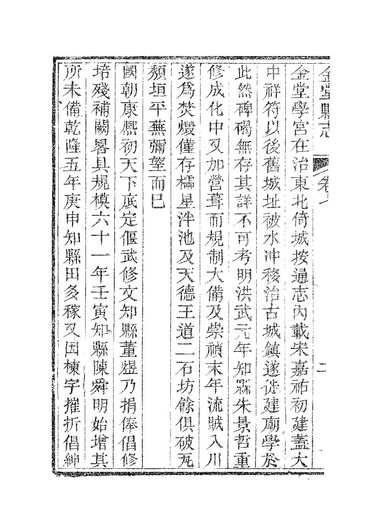 金堂縣志
卷七
二
金堂學宮在治東北倚城按通志內載宋嘉祐初建蓋大
中祥符以後舊城址被水冲移治古城鎮遂徙建廟學於
此然碑碣無存其詳不可考明洪武元年知縣朱景哲重
修成化中又加營葺而規制大備及崇禎末年流賊入川
遂爲焚燬僅存櫺星泮池及天德王道二石坊餘俱破瓦
頹垣平蕪彌望而已
國朝康熙初天下底定偃武修文知縣董 乃捐俸倡修
培殘補闕畧具規模六十一年壬寅知縣陳舜明始增其
所未備乾隆五年庚申知縣田多稼又因棟宇摧折倡紳